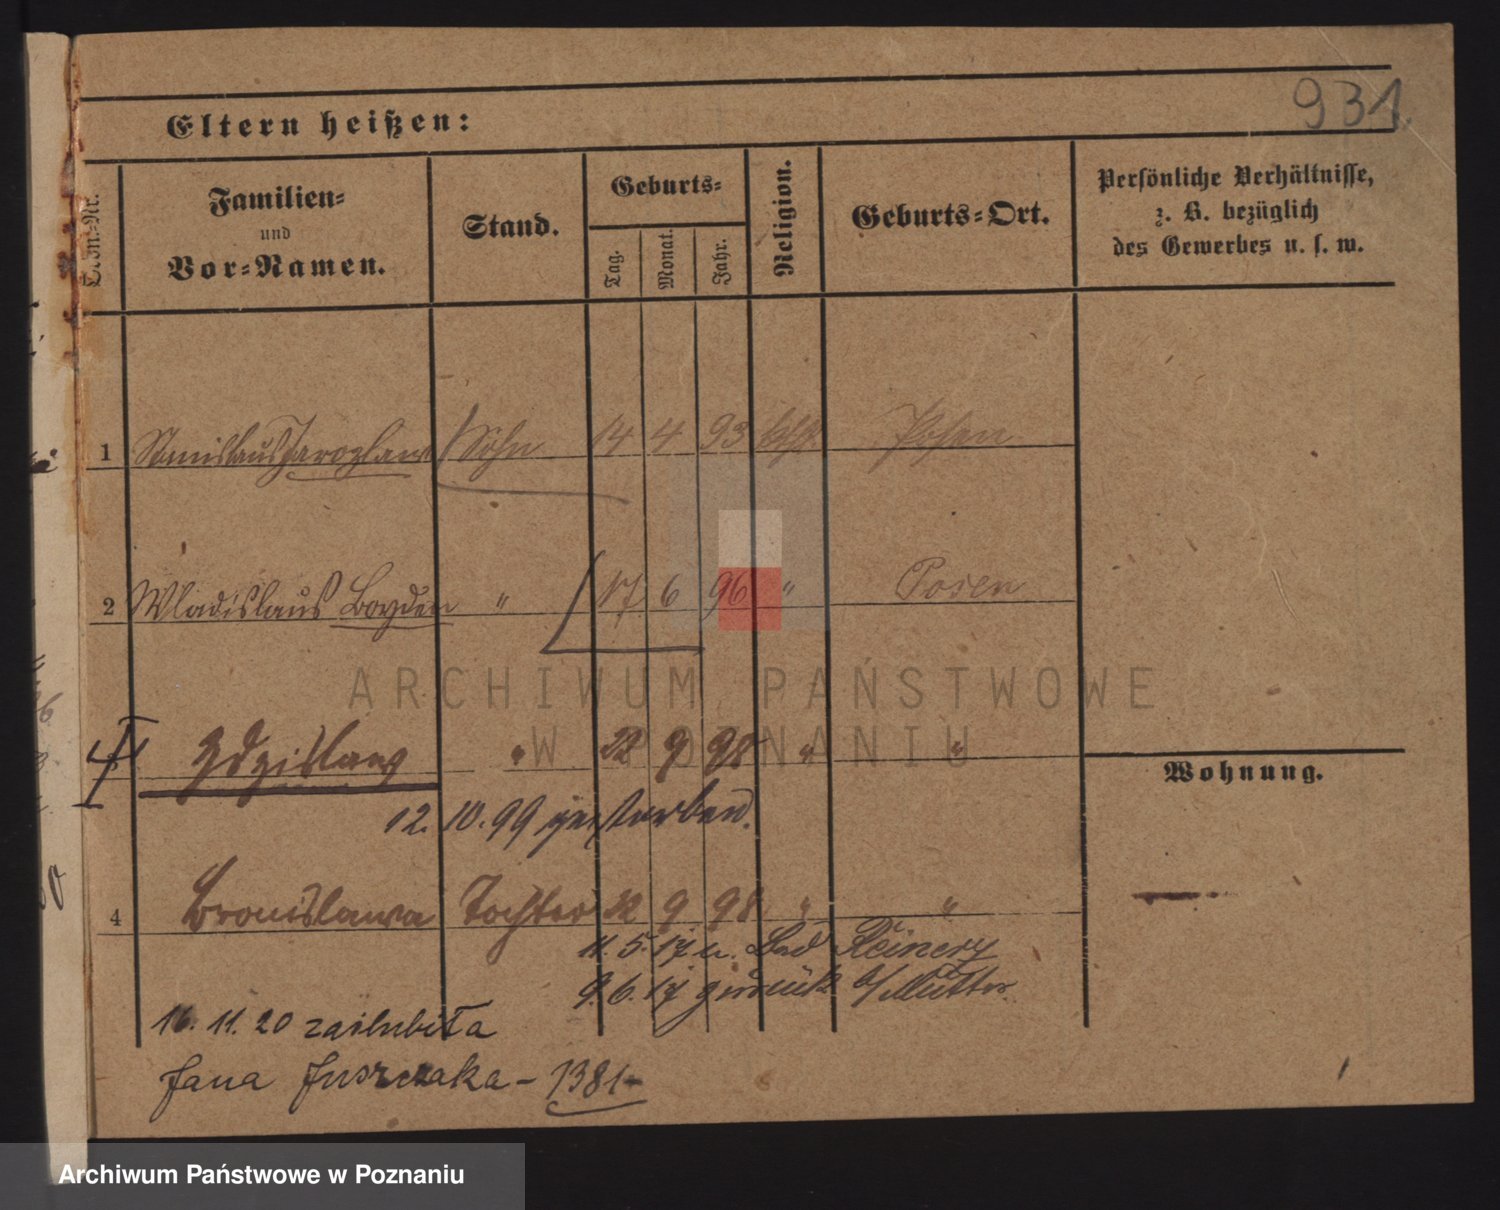 931.
Eltern heißen:
Ordn.-Nr.
Familien-
und
Vor-Namen.
Stand.
Geburts-
Tag.
Monat.
Jahr.
Religion.
Geburts-Ort.
Persönliche Verhältnisse,
z. B. bezüglich
des Gewerbes u. s. w.
1 Stanislaus Jarozlaw Sohn 14 4 93 kath Posen
2 Wladislaus " 17. 6 96 " Posen
ARCHIWUM PAŃSTWOWE
W POZNANIU
Zdzislaw " 22 9 98 " "
Wohnung.
12. 10. 99 gestorben.
4 Bronislawa Tochter 22 9 98 " "
11. 5. 17 n. Bad Reinerz
9. 6. 17 zurück b/ Mutter.
16. 11. 20 zaślubiła
Jana Juszczaka - 1381 -
Archiwum Państwowe w Poznaniu